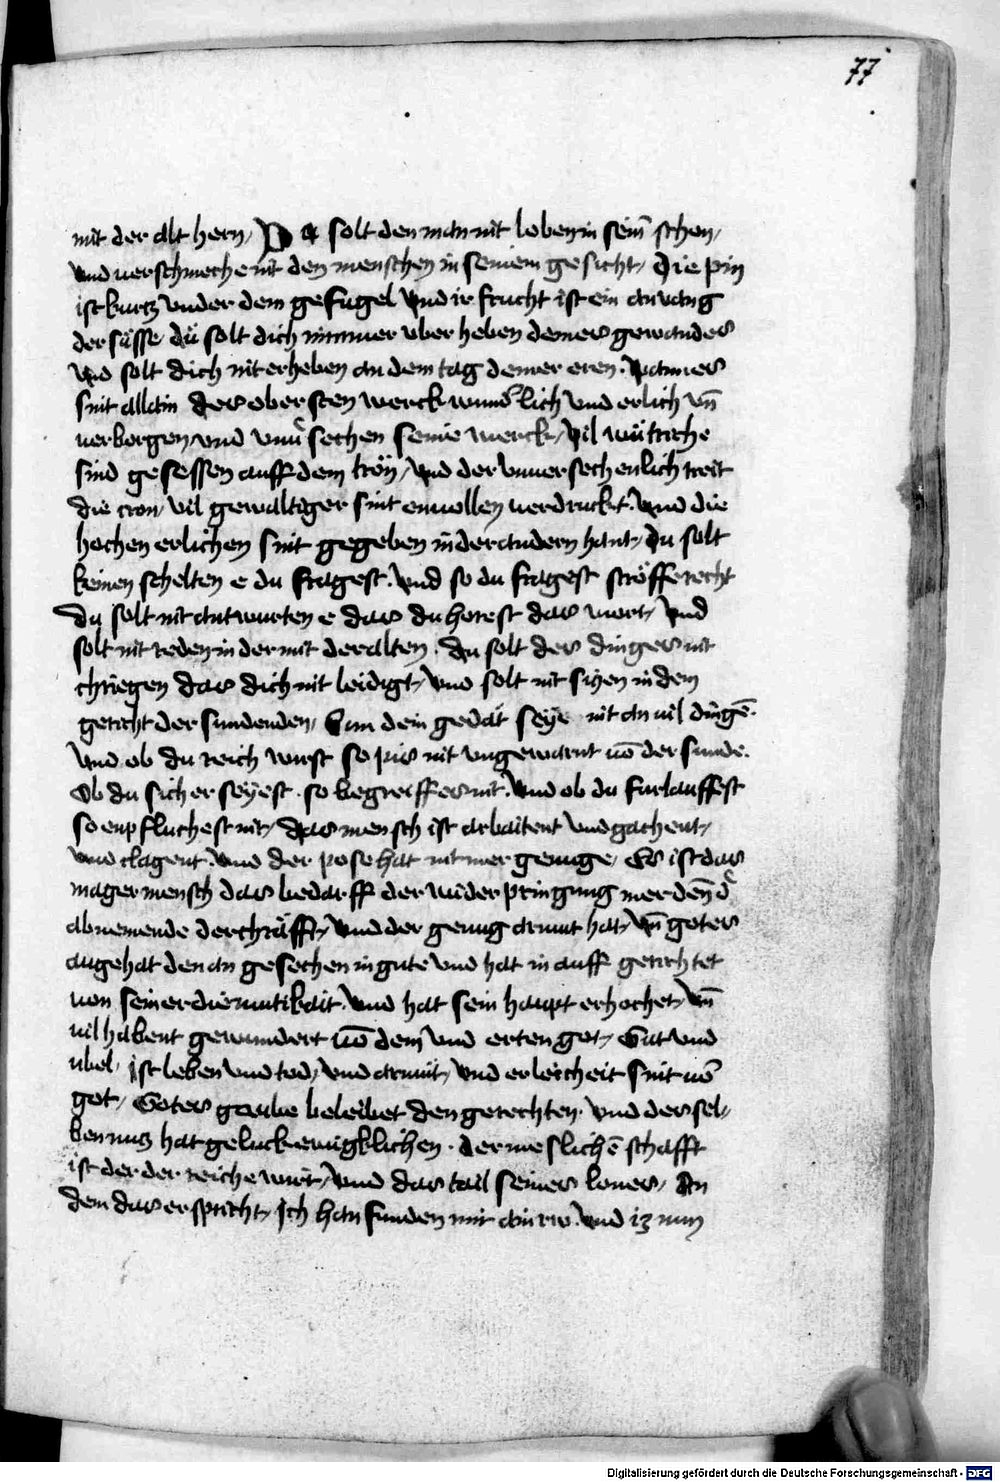 77
mit der alt hern, Du solt den man nit loben in seim̄ schon,
und uerschmeche nit den menschen in seinem gesicht, die pin
ist kurtz under dem gefugel und ir frucht ist ein anuang
der süsse, dü solt dich nimmer uber heben deines gewandes
und solt dich nit erheben an dem tag deiner eren. wann es
sint allain des obersten werck wund̉lich und erlich un̄
uerborgen, und unu̇ sechen seine werck, vil wütriche
sind gesessen auff dem tron, und der unuersechenlich treit
die cron, vil gewaltiger sint enuollen uerdruckt. und die
hochen erlichen sint gegeben in der andern hant, du solt
keinen schelten e du fragest. und so du fragest ströffe recht
du solt nit antwurten e das du horest das wort, und
solt nit reden in der mit der alten. du solt des dinges nit
chriegen das dich nit leidigt, und solt nit siczen in dem
gericht der sundenden, Sun dein gedät seye nit an uil dingē.
und ob du reich wirst so pis nit ungewarnt uō der sunde.
Ob du sicher seyest. so begreiffes nit. und ob du furlauffest
so enpfluchest nit, das mensch ist arbaitent und gachent,
und clagent. und der pose hat nit mer genuge, Es ist das
mager mensch das bedarff der widerpringung mer den̄ d̉
abnemende der chräfft, und der genug armut hat, un̄ gotes
auge hat den an gesechen in gute und hat in auff gerichtet
uon seiner diemutikait. und hat sein haupt erhochet, un̄
uil habent gewundert uō dem und erten got, Gut und
ubel, ist leben und tod, und armüt, und erleicheit sint uō
got, Gotes gaube beleibet den gerechten. und der sel,
ben nutz hat geluck ewigklichen. der meslichē schafft
ist der der reiche wirt, und das tail seines lones, An
dem das er spricht, Ich han funden mir ain rw. und iz nun
Digitalisierung gefördert durch die Deutsche Forschungsgemeinschaft - DFG